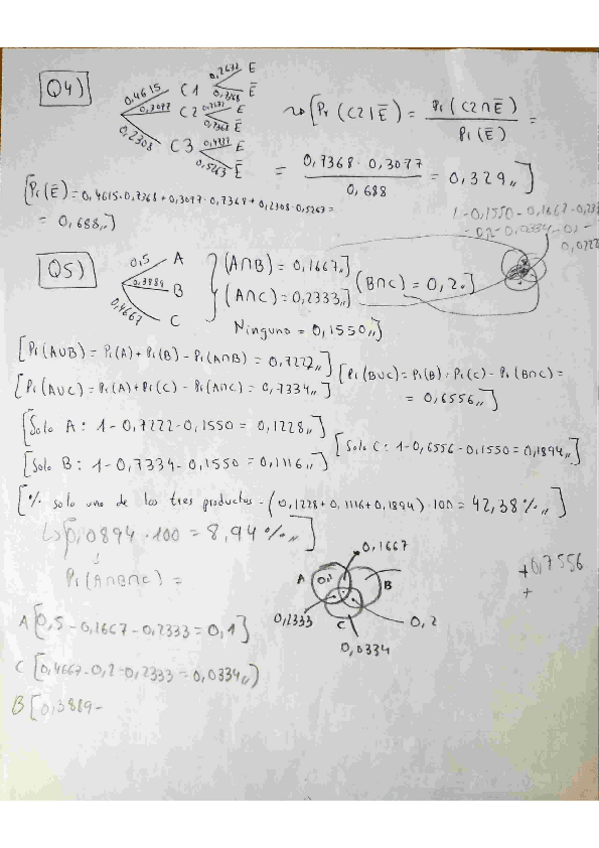 Q4)
0,4615 C1 0,2632 E
0,7368 Ē
0,3077 C2 E
0,7368 Ē
0,2308 C3 E
0,5263 Ē
[Pr(C2|Ē) = Pr(C2∩Ē) / Pr(Ē) =
= 0,7368 · 0,3077 / 0,688 = 0,329,,]
[Pr(Ē) = 0,4615·0,7368 + 0,3077·0,7368 + 0,2308·0,5263 =
= 0,688,,]
1-0,1550-0,1667-0,233
0,0222
Q5)
0,5 A
0,3889 B
0,4667 C
(A∩B) = 0,1667,,]
(A∩C) = 0,2333,,]
(B∩C) = 0,2,,]
Ninguno = 0,1550,,]
[Pr(A∪B) = Pr(A) + Pr(B) - Pr(A∩B) = 0,7222,,]
[Pr(A∪C) = Pr(A) + Pr(C) - Pr(A∩C) = 0,7334,,]
[Pr(B∪C) = Pr(B) + Pr(C) - Pr(B∩C) =
= 0,6556,,]
[Solo A: 1-0,7222-0,1550 = 0,1228,,]
[Solo B: 1-0,7334-0,1550 = 0,1116,,]
[Solo C: 1-0,6556-0,1550 = 0,1894,,]
[% solo uno de los tres productos = (0,1228+0,1116+0,1894)·100 = 42,38%,,]
[0,0894 · 100 = 8,94%,,]
Pr(A∩B∩C) =
0,1667
A 0,1 B
0,2333 C 0,2
0,0334
+0,7556
+
A [0,5-0,1667-0,2333 = 0,1]
C [0,4667-0,2-0,2333 = 0,0334,,)
B [0,3889-